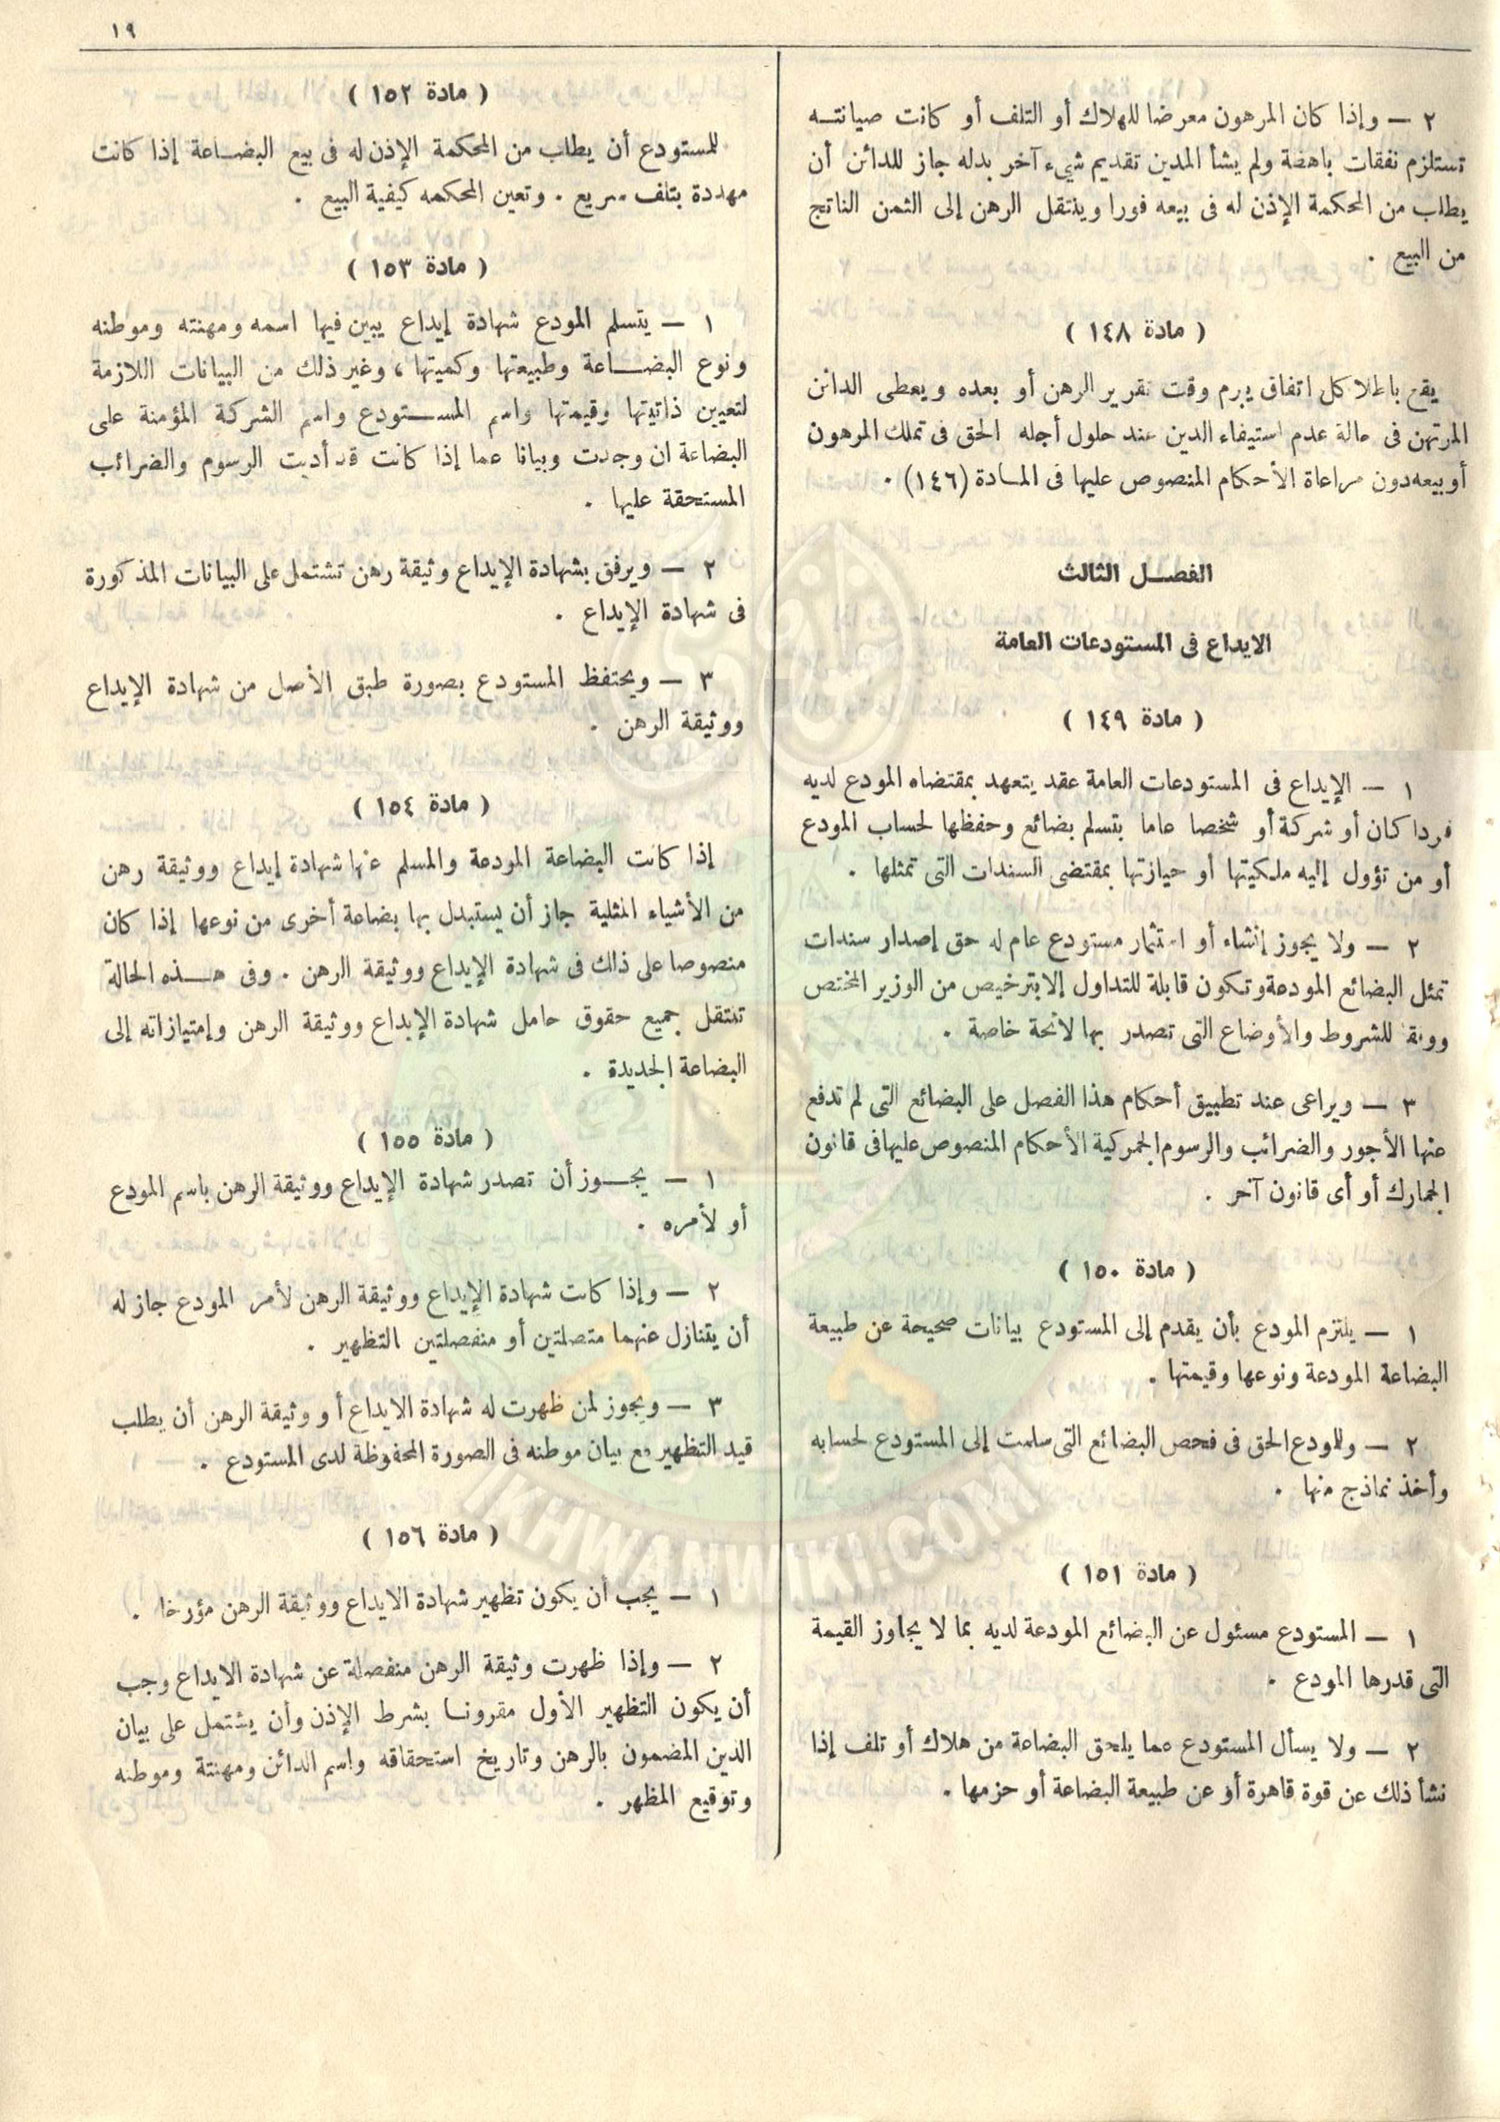 ١٩
٢ — وإذا كان المرهون معرضا للهلاك أو التلف أو كانت صيانته
تستلزم نفقات باهضة ولم يشأ المدين تقديم شيء آخر بدله جاز للدائن أن
يطلب من المحكمة الإذن له فى بيعه فورا وينتقل الرهن إلى الثمن الناتج
من البيع .
( مادة ١٤٨ )
يقع باطلا كل اتفاق يبرم وقت تقرير الرهن أو بعده ويعطى الدائن
المرتهن فى حالة عدم استيفاء الدين عند حلول أجله الحق فى تملك المرهون
أو بيعه دون مراعاة الأحكام المنصوص عليها فى المادة (١٤٦) .
الفصل الثالث
الايداع فى المستودعات العامة
( مادة ١٤٩ )
١ — الإيداع فى المستودعات العامة عقد يتعهد بمقتضاه المودع لديه
فردا كان أو شركة أو شخصا عاما بتسلم بضائع وحفظها لحساب المودع
أو من تؤول إليه ملكيتها أو حيازتها بمقتضى السندات التى تمثلها .
٢ — ولا يجوز إنشاء أو استثمار مستودع عام له حق إصدار سندات
تمثل البضائع المودعة وتكون قابلة للتداول إلا بترخيص من الوزير المختص
ووفقا للشروط والأوضاع التى تصدر بها لائحة خاصة .
٣ — ويراعى عند تطبيق أحكام هذا الفصل على البضائع التى لم تدفع
عنها الأجور والضرائب والرسوم الجمركية الأحكام المنصوص عليها فى قانون
الجمارك أو أى قانون آخر .
( مادة ١٥٠ )
١ — يلتزم المودع بأن يقدم إلى المستودع بيانات صحيحة عن طبيعة
البضاعة المودعة ونوعها وقيمتها .
٢ — وللودع الحق فى فحص البضائع التى سلمت إلى المستودع لحسابه
وأخذ نماذج منها .
( مادة ١٥١ )
١ — المستودع مسئول عن البضائع المودعة لديه بما لا يجاوز القيمة
التى قدرها المودع .
٢ — ولا يسأل المستودع عما يلحق البضاعة من هلاك أو تلف إذا
نشأ ذلك عن قوة قاهرة أو عن طبيعة البضاعة أو حزمها .
( مادة ١٥٢ )
للمستودع أن يطلب من المحكمة الإذن له فى بيع البضاعة إذا كانت
مهددة بتلف سريع . وتعين المحكمه كيفية البيع .
( مادة ١٥٣ )
١ — يتسلم المودع شهادة إيداع يبين فيها اسمه ومهنته وموطنه
ونوع البضاعة وطبيعتها وكميتها ، وغير ذلك من البيانات اللازمة
لتعيين ذاتيتها وقيمتها واسم المستودع واسم الشركة المؤمنة على
البضاعة ان وجدت وبيانا عما إذا كانت قد أديت الرسوم والضرائب
المستحقة عليها .
٢ — ويرفق بشهادة الإيداع وثيقة رهن تشتمل على البيانات المذكورة
فى شهادة الإيداع .
٣ — ويحتفظ المستودع بصورة طبق الأصل من شهادة الإيداع
ووثيقة الرهن .
( مادة ١٥٤ )
إذا كانت البضاعة المودعة والمسلم عنها شهادة إيداع ووثيقة رهن
من الأشياء المثلية جاز أن يستبدل بها بضاعة أخرى من نوعها إذا كان
منصوصا على ذلك فى شهادة الإيداع ووثيقة الرهن . وفى هذه الحالة
تنتقل جميع حقوق حامل شهادة الإيداع ووثيقة الرهن وإمتيازاته إلى
البضاعة الجديدة .
( مادة ١٥٥ )
١ — يجوز أن تصدر شهادة الإيداع ووثيقة الرهن باسم المودع
أو لأمره .
٢ — وإذا كانت شهادة الإيداع ووثيقة الرهن لأمر المودع جاز له
أن يتنازل عنهما متصلتين أو منفصلتين التظهير .
٣ — ويجوز لمن ظهرت له شهادة الايداع أو وثيقة الرهن أن يطلب
قيد التظهير مع بيان موطنه فى الصورة المحفوظة لدى المستودع .
( مادة ١٥٦ )
١ — يجب أن يكون تظهير شهادة الايداع ووثيقة الرهن مؤرخا .
٢ — وإذا ظهرت وثيقة الرهن منفصلة عن شهادة الايداع وجب
أن يكون التظهير الأول مقرونا بشرط الإذن وأن يشتمل على بيان
الدين المضمون بالرهن وتاريخ استحقاقه واسم الدائن ومهنتة وموطنه
وتوقيع المظهر .
IKHWANWIKI.COM